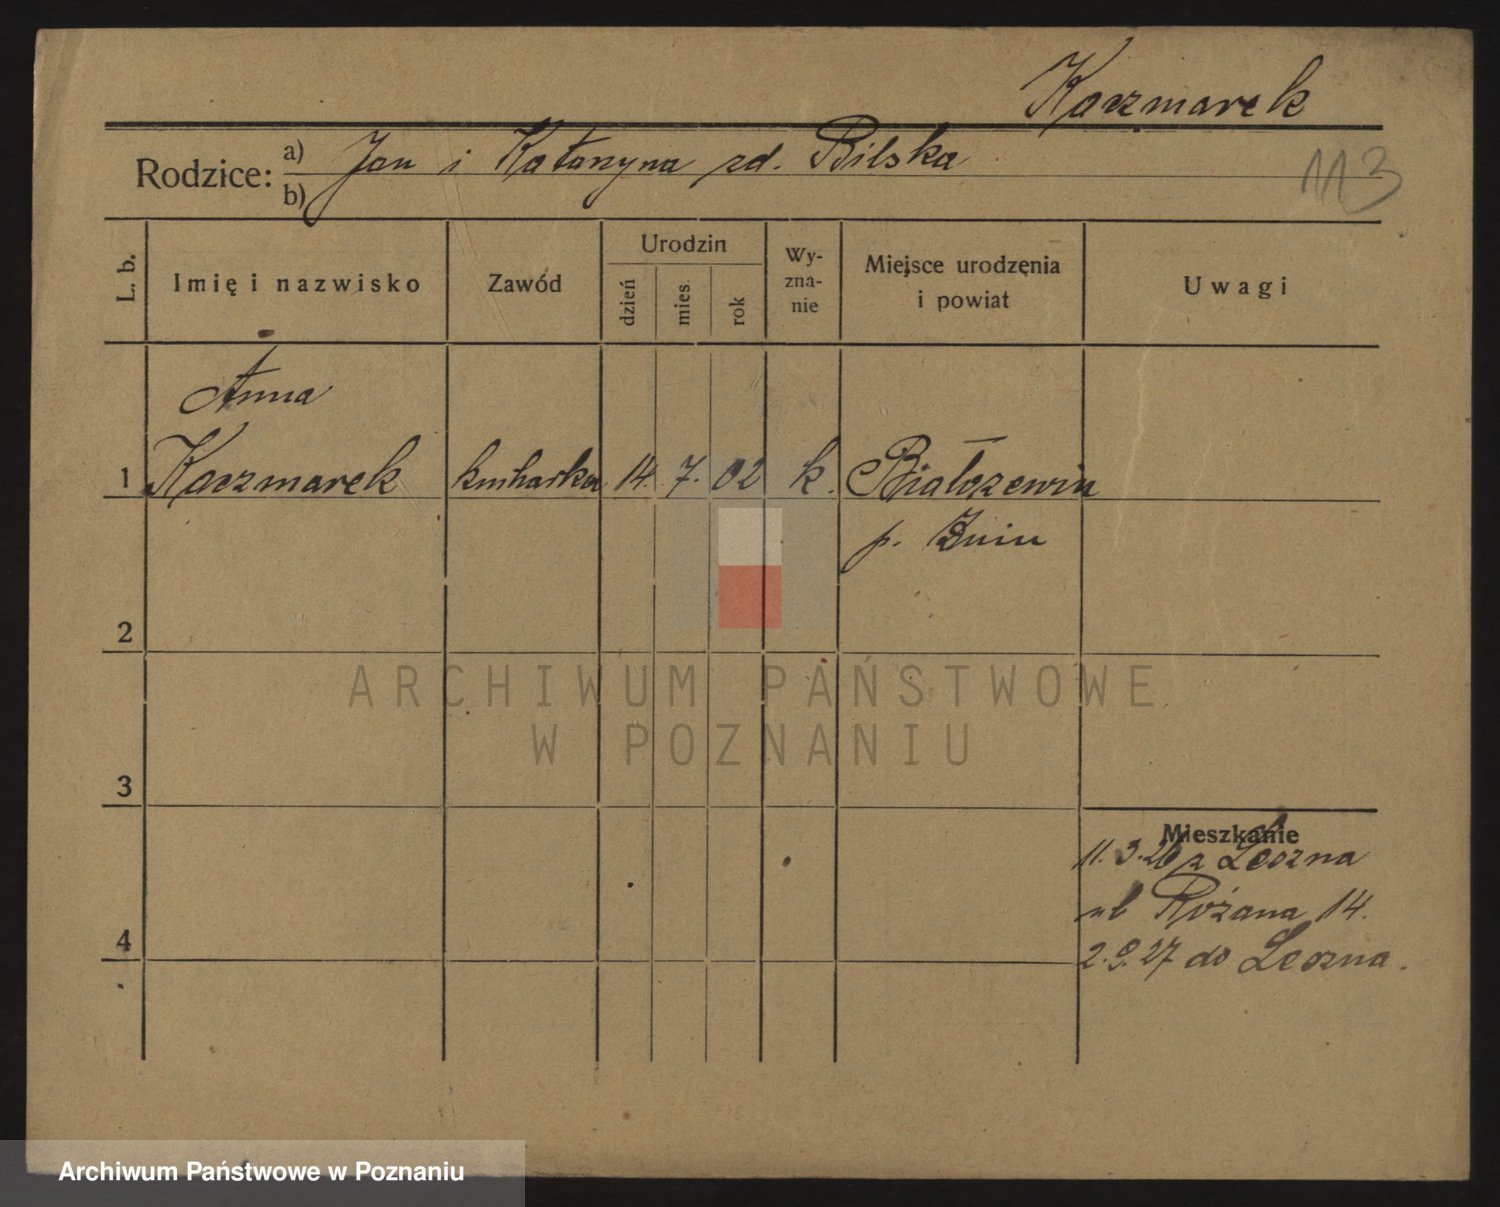 Kaczmarek
Rodzice: a) Jan i Katarzyna zd. Bilska
b)
113
L. b.
Imię i nazwisko
Zawód
Urodzin
dzień
mies.
rok
Wy-
zna-
nie
Miejsce urodzenia
i powiat
Uwagi
Anna
1 Kaczmarek kucharka 14. 7. 02 k. Białożewin
p. Żnin
2
3
4
ARCHIWUM PAŃSTWOWE
W POZNANIU
Mieszkanie
11.3.26 z Leszna
ul Różana 14.
2.9.27 do Leszna.
Archiwum Państwowe w Poznaniu